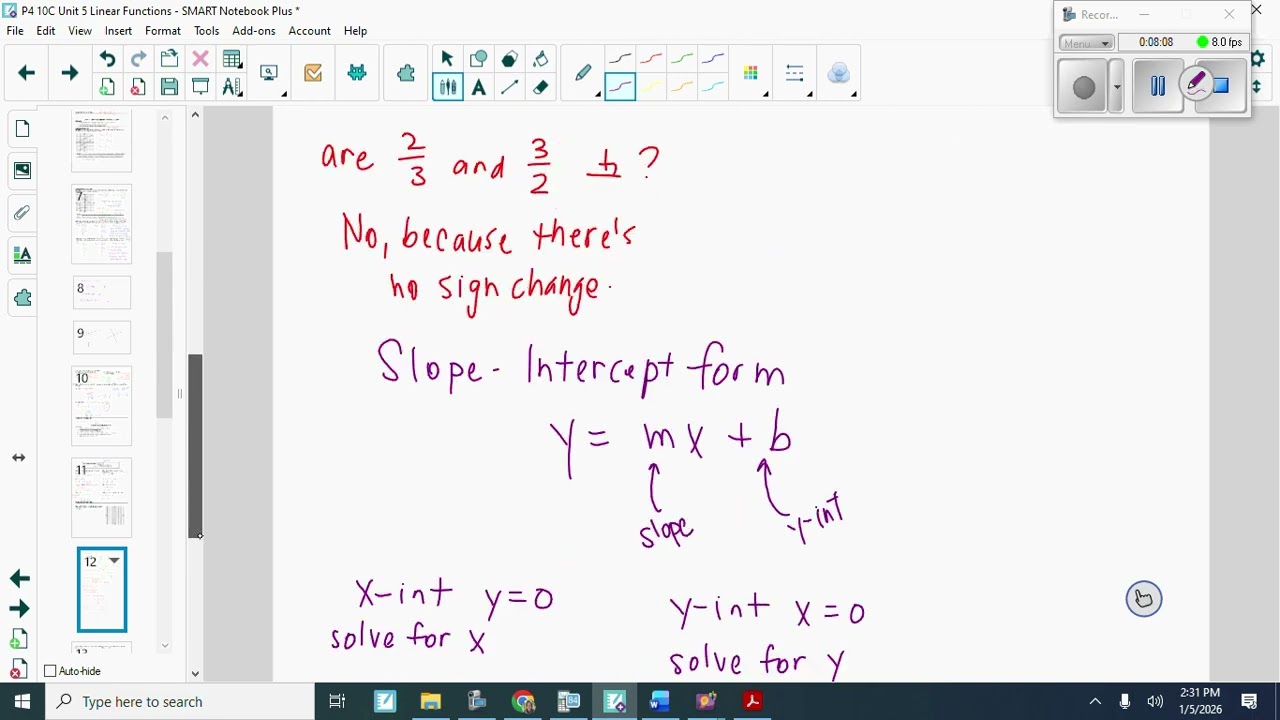 P4 10C Unit 5 Linear Functions - SMART Notebook Plus *
File Edit View Insert Format Tools Add-ons Account Help
Recor...
Menu
0:08:08
8.0 fps
7
8
9
10
11
12
Auto-hide
are 2/3 and 3/2 ⊥?
No, because there's
no sign change.
Slope - Intercept form
y = mx + b
slope
y-int
x-int y=0
solve for x
y-int x = 0
solve for y
Type here to search
2:31 PM
1/5/2026